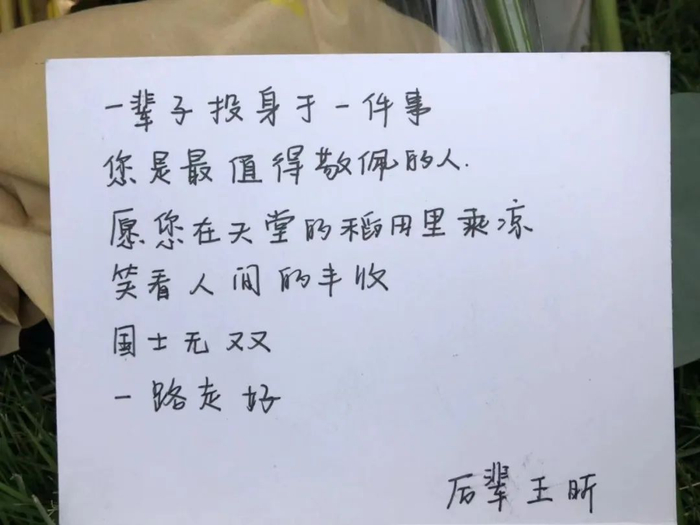 一辈子投身于一件事
您是最值得敬佩的人.
愿您在天堂的稻田里乘凉
笑看人间的丰收
国士无双
一路走好
后辈王昕